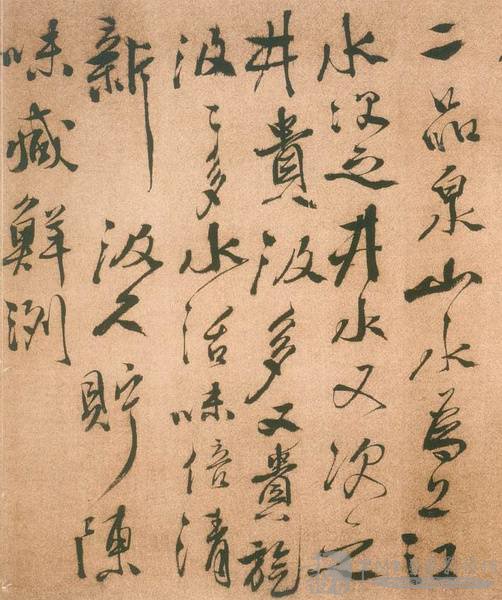 二品泉山水為上江
水次之井水又次之
井貴汲多又貴旋
汲〻多水活味倍清
新汲久貯陳
味減鮮洌